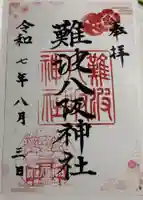 奉拝
難波八阪神社
難波
神社
令和七年八月三日